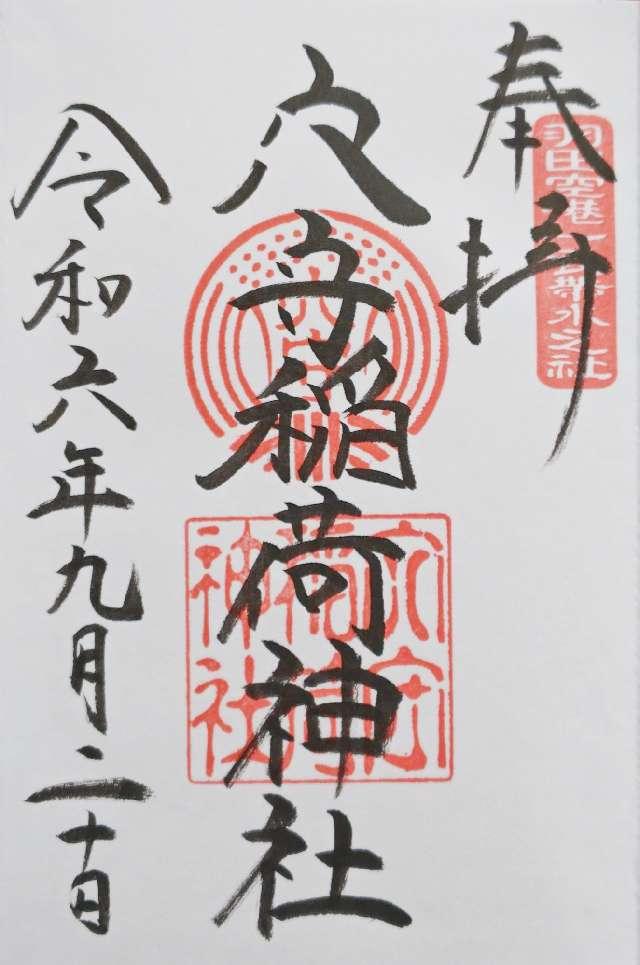 奉拝
羽田空港一衣帯水之社
穴守稲荷神社
穴守
稲荷
神社
令和六年九月二十日